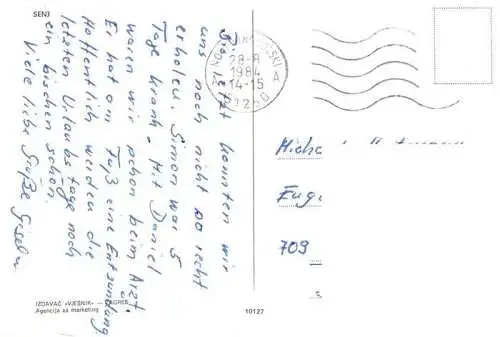 SENJ
Bis jetzt konnten wir
uns noch nicht so recht
erholen. Simon war 5
Tage krank. Mit Daniel
waren wir schon beim Arzt.
Er hat am Fuß eine Entzündung.
Hoffentlich werden die
letzten Urlaubstage noch
ein bischen schön.
Viele liebe Grüße Gisela
1984
14-15
A
709
IZDAVAČ »VJESNIK« — ZAGREB
Agencija za marketing
10127